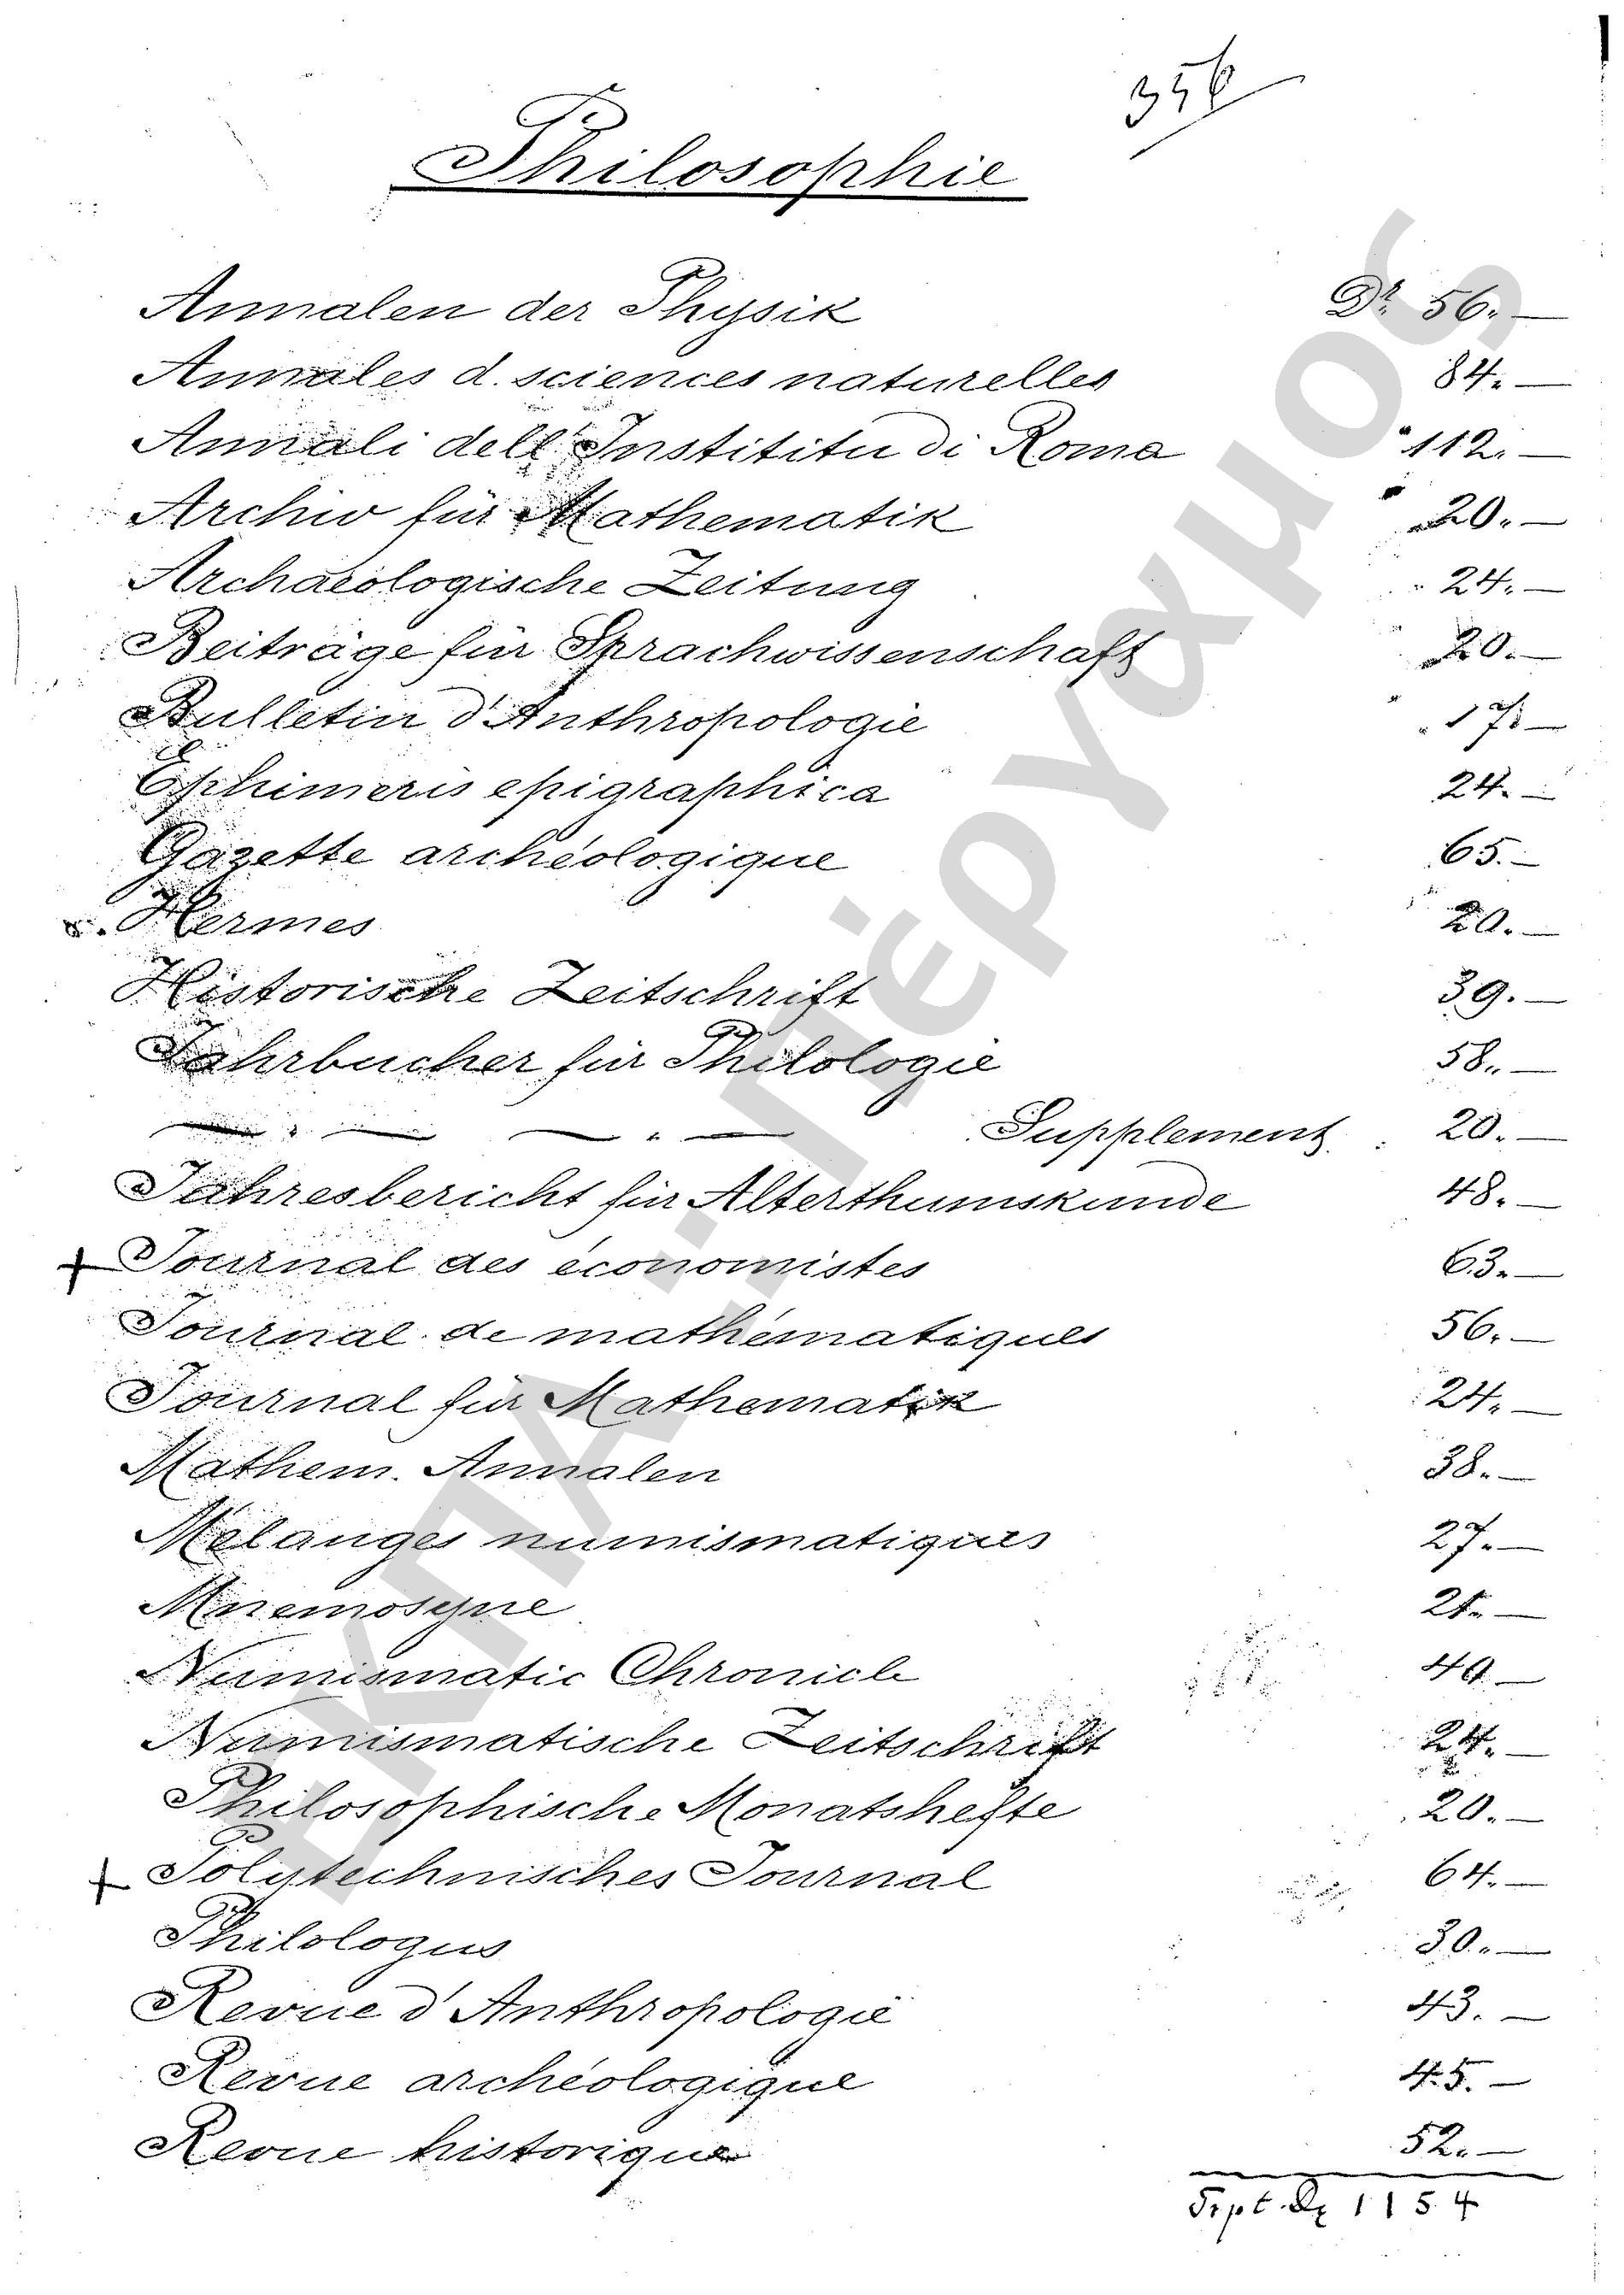 356
Philosophie
Annalen der Physik Dr. 56.—
Annales d. sciences naturelles 84.—
Annali dell' Instititu di Roma 112.—
Archiv für Mathematik 20.—
Archaeologische Zeitung 24.—
Beiträge für Sprachwissenschaft 20.—
Bulletin d'Anthropologie 17.—
Ephimeris epigraphica 24.—
Gazette archéologique 65.—
Hermes 20.—
Historische Zeitschrift 39.—
Jahrbücher für Philologie 58.—
— " — — " — Supplement 20.—
Jahresbericht für Alterthumskunde 48.—
+ Journal des économistes 63.—
Journal de mathématiques 56.—
Journal für Mathematik 24.—
Mathem. Annalen 38.—
Mélanges numismatiques 27.—
Mnemosyne 21.—
Numismatic Chronicle 40.—
Numismatische Zeitschrift 24.—
Philosophische Monatshefte 20.—
+ Polytechnisches Journal 64.—
Philologus 30.—
Revue d'Anthropologie 43.—
Revue archéologique 45.—
Revue historique 52.—
Dr 1154
ΕΚΠΑ::Πέργαμος